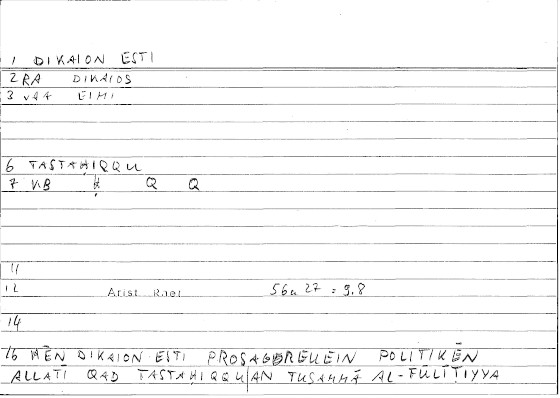 1 DIKAION ESTI
2 RA DIKAIOS
3 VAA EIMI
6 TASTAḤIQQU
7 VIB Ḥ Q Q
11
12 Arist. Rhet 56a 27 = 9.8
14
16 HĒN DIKAION ESTI PROSAGOREUEIN POLITIKĒN
ALLATĪ QAD TASTAḤIQQU AN TUSAMMĀ AL-FŪLĪṬIYYA